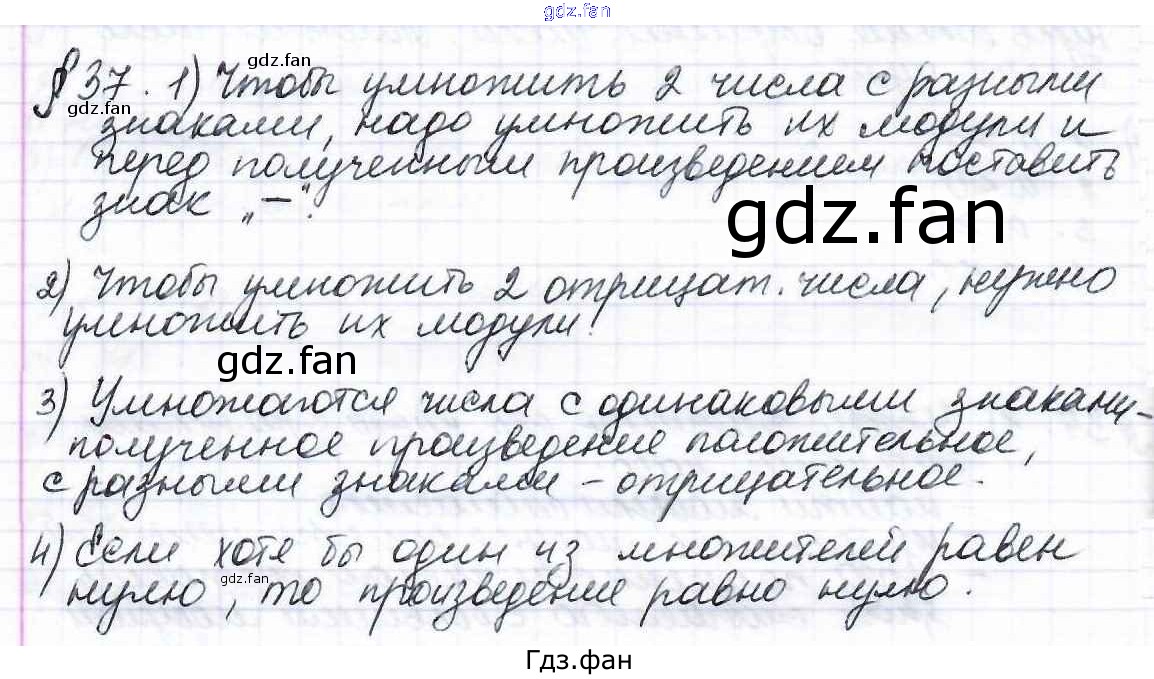 gdz.fan
§ 37. 1) Чтобы умножить 2 числа с разными
gdz.fan
gdz.fan
знаками, надо умножить их модули и
перед полученным произведением поставить
знак „—".
gdz.fan
2) Чтобы умножить 2 отрицат. числа, нужно
умножить их модули.
gdz.fan
3) Умножаются числа с одинаковыми знаками-
полученное произведение положительное,
с разными знаками – отрицательное.
4) Если хотя бы один из множителей равен
gdz.fan
нулю, то произведение равно нулю.
Гдз.фан